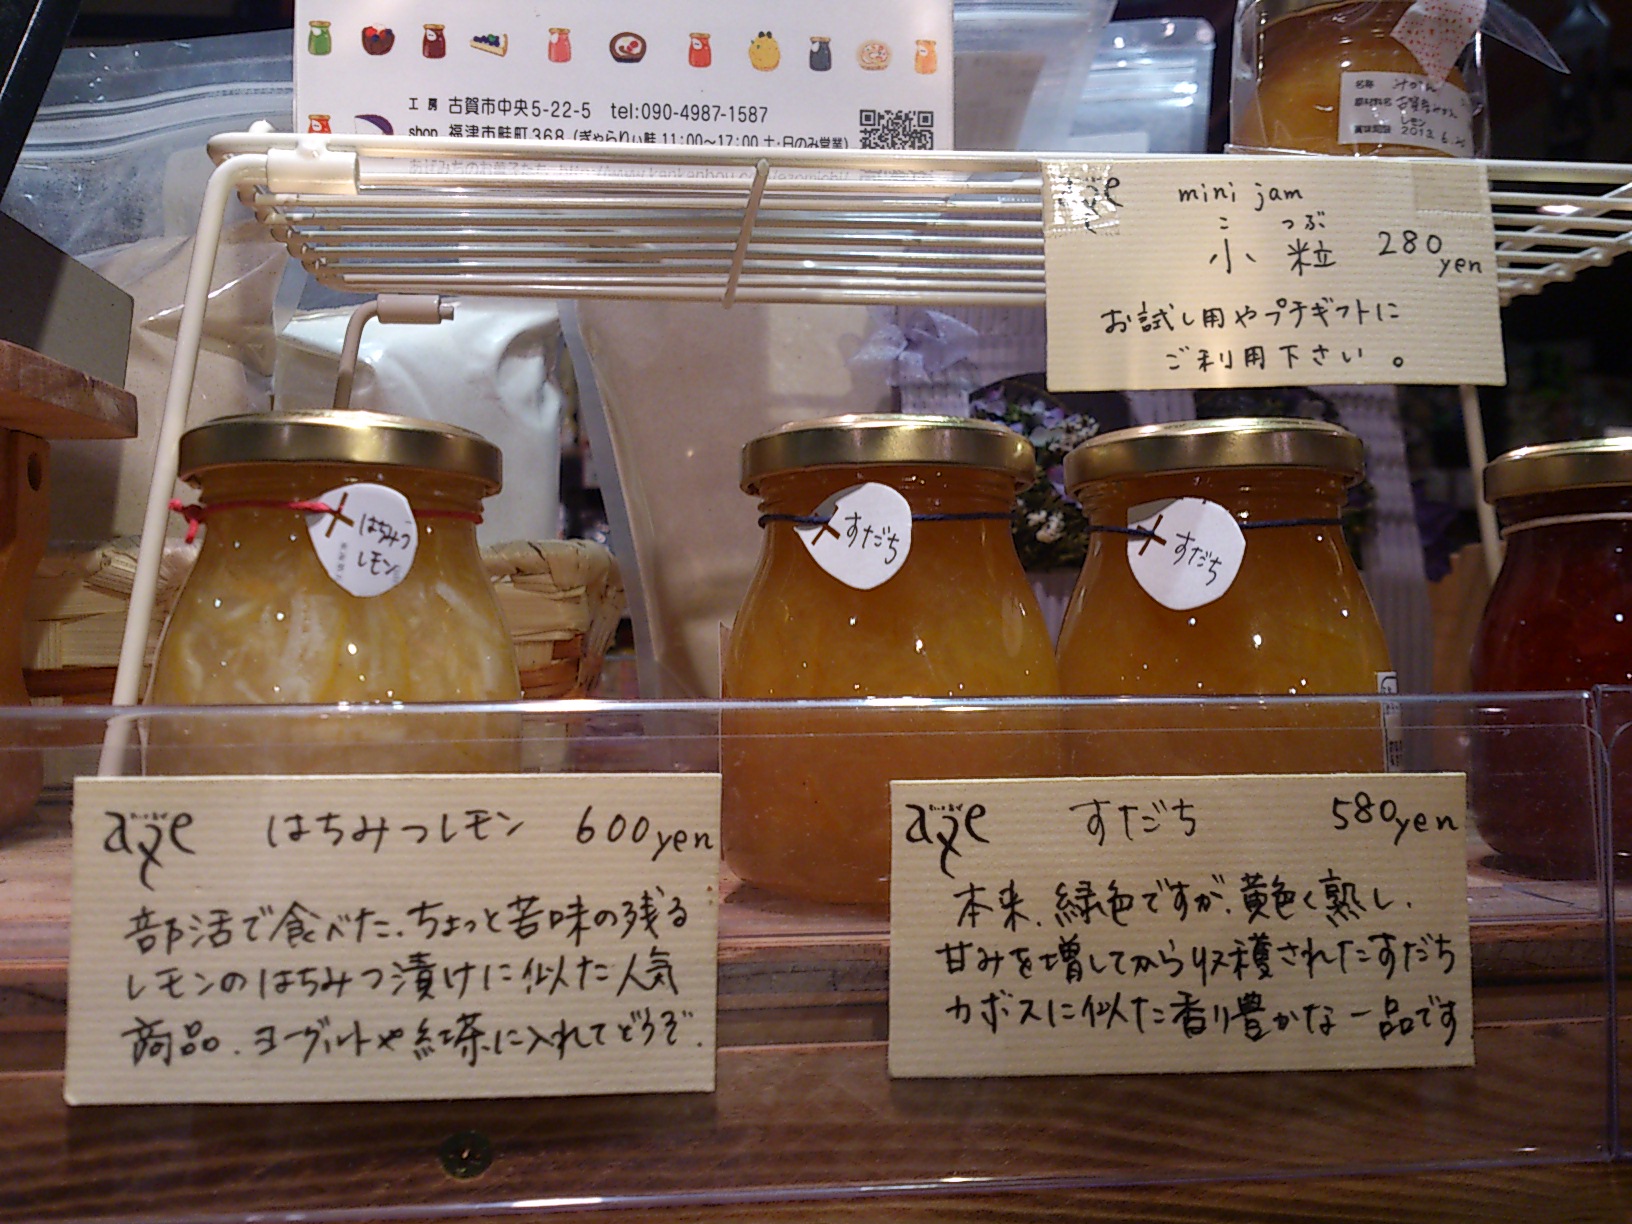 工房 古賀市中央5-22-5 tel:090-4987-1587
shop 福津市畦町368 (ぎゃらりぃ畦 11:00〜17:00 土・日のみ営業)
名称 みかん
原材料名 古賀産みかん
レモン
賞味期限 2013.6.
mini jam
こ つぶ
小粒 280yen
お試し用やプチギフトに
ご利用下さい。
はちみつ
レモン
すだち
すだち
はちみつレモン 600yen
部活で食べた、ちょっと苦味の残る
レモンのはちみつ漬けに似た人気
商品。ヨーグルトや紅茶に入れてどうぞ。
すだち 580yen
本来、緑色ですが、黄色く熟し、
甘みを増してから収穫されたすだち
カボスに似た香り豊かな一品です